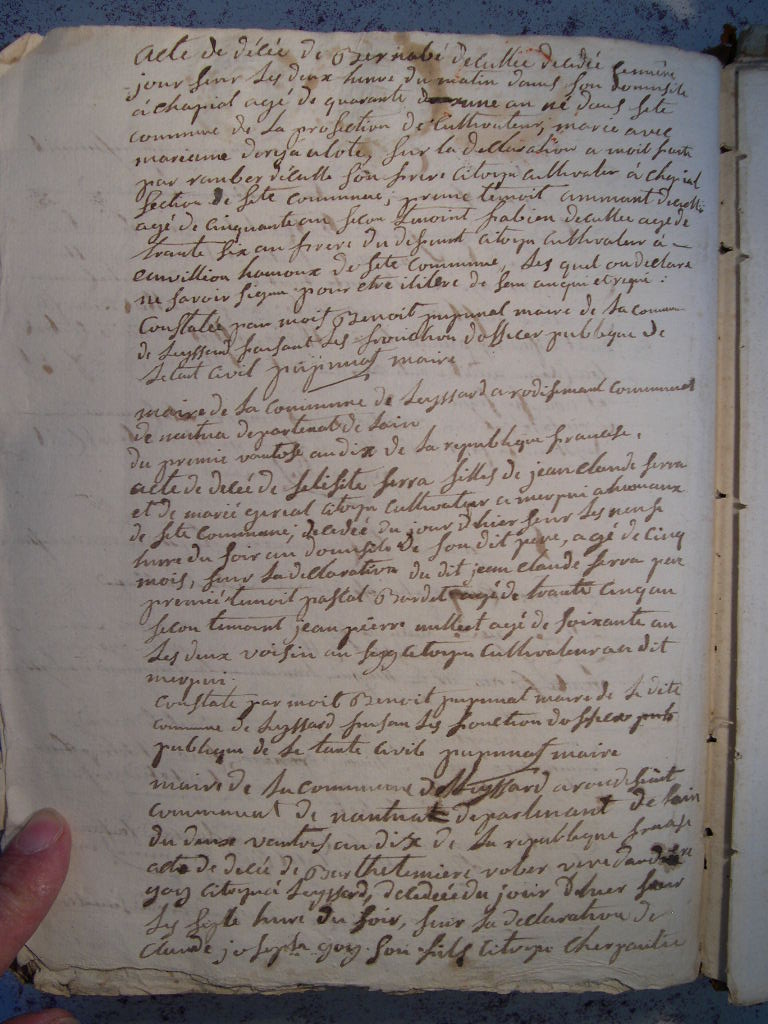 acte de décée de Bernabé decullié decedée semême
jour seur les deux hure du matin dans son domisile
à chapiat agé de quarante une an né dans sete
commune de la profection de Cultivateur, marié avec
marieane, sur la declaration a moit faite
par decullié son frere citoyn cultivateur à chapiat
section de sete commune; premié témoit ammant decullié
agé de cinquante an secon témoint fabien decullié agé de
trante six an frere du difeunt citoyn cultivateur à
hamoux de sete commune, les quel on declare
ne savoir signé pour etre ilitére de sem enqui et requi :
Constatée par moit Benoit pupunat maire de la commune
de Leyssard faisant les fronction dofficer publique de
letat Civil pupunat maire
maire de la commune de Leyssard arrodisement communal
de nantua departenat de lain
du premié vantose an dix de la republique francese,
acte de decée de felisité serra filles de jean claude serra
et de marié citoyn cultivateur a merpui ahamaux
de sete commune, decedée du jour d'hier seur les neuse
hure du soir au domisile de son dit pere, agé de cinq
mois, sur la declaration du dit jean claude serra pere
premié temoit pascal Bardet agé de trante cinq an
secon temoint jean pierre mullet agé de soixante an
Les deux voisin au citoyn cultivateur au dit
merpui.
Constaté par moit Benoit pupunat maire de la dite
commune de Leyssard fesan les fonction dofficer pub
publique de le tante civile pupunat maire
maire de la commune de Leyssard arondisiait
communent de nantuat departenant de lain
du deux vantose an dix de la republique franse
acte de decée de Barthelemiere rober veve dandre
goy citoyné Leyssard, decedeée du jour d'hier seur
les septe huré du soir, sur la declaration de
claude joseph goy son fils citoyn cherpantié